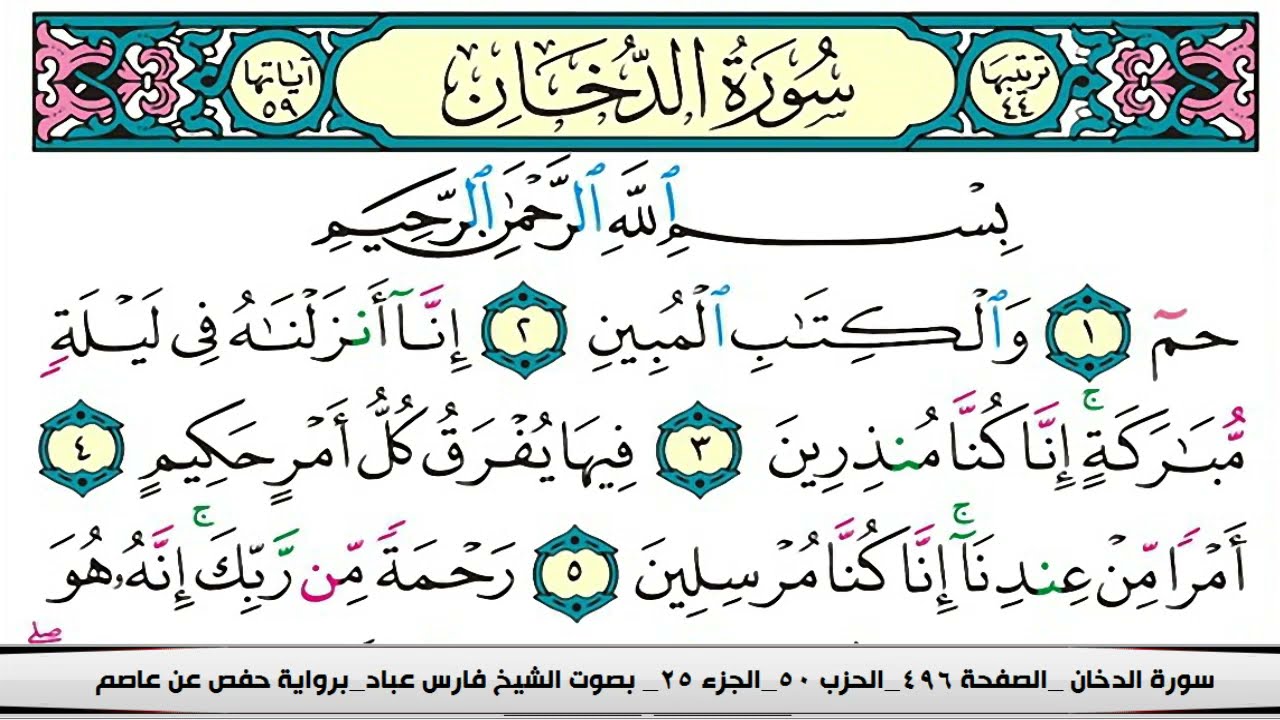 ترتيبها ٤٤ سُورَةُ الدُّخَانِ آياتها ٥٩
بِسْمِ ٱللَّهِ ٱلرَّحْمَٰنِ ٱلرَّحِيمِ
حمٓ ١ وَٱلْكِتَٰبِ ٱلْمُبِينِ ٢ إِنَّآ أَنزَلْنَٰهُ فِى لَيْلَةٍ
مُّبَٰرَكَةٍ ۚ إِنَّا كُنَّا مُنذِرِينَ ٣ فِيهَا يُفْرَقُ كُلُّ أَمْرٍ حَكِيمٍ ٤
أَمْرًا مِّنْ عِندِنَآ ۚ إِنَّا كُنَّا مُرْسِلِينَ ٥ رَحْمَةً مِّن رَّبِّكَ ۚ إِنَّهُۥ هُوَ
سورة الدخان _الصفحة ٤٩٦_الحزب ٥٠_الجزء ٢٥_ بصوت الشيخ فارس عباد_برواية حفص عن عاصم